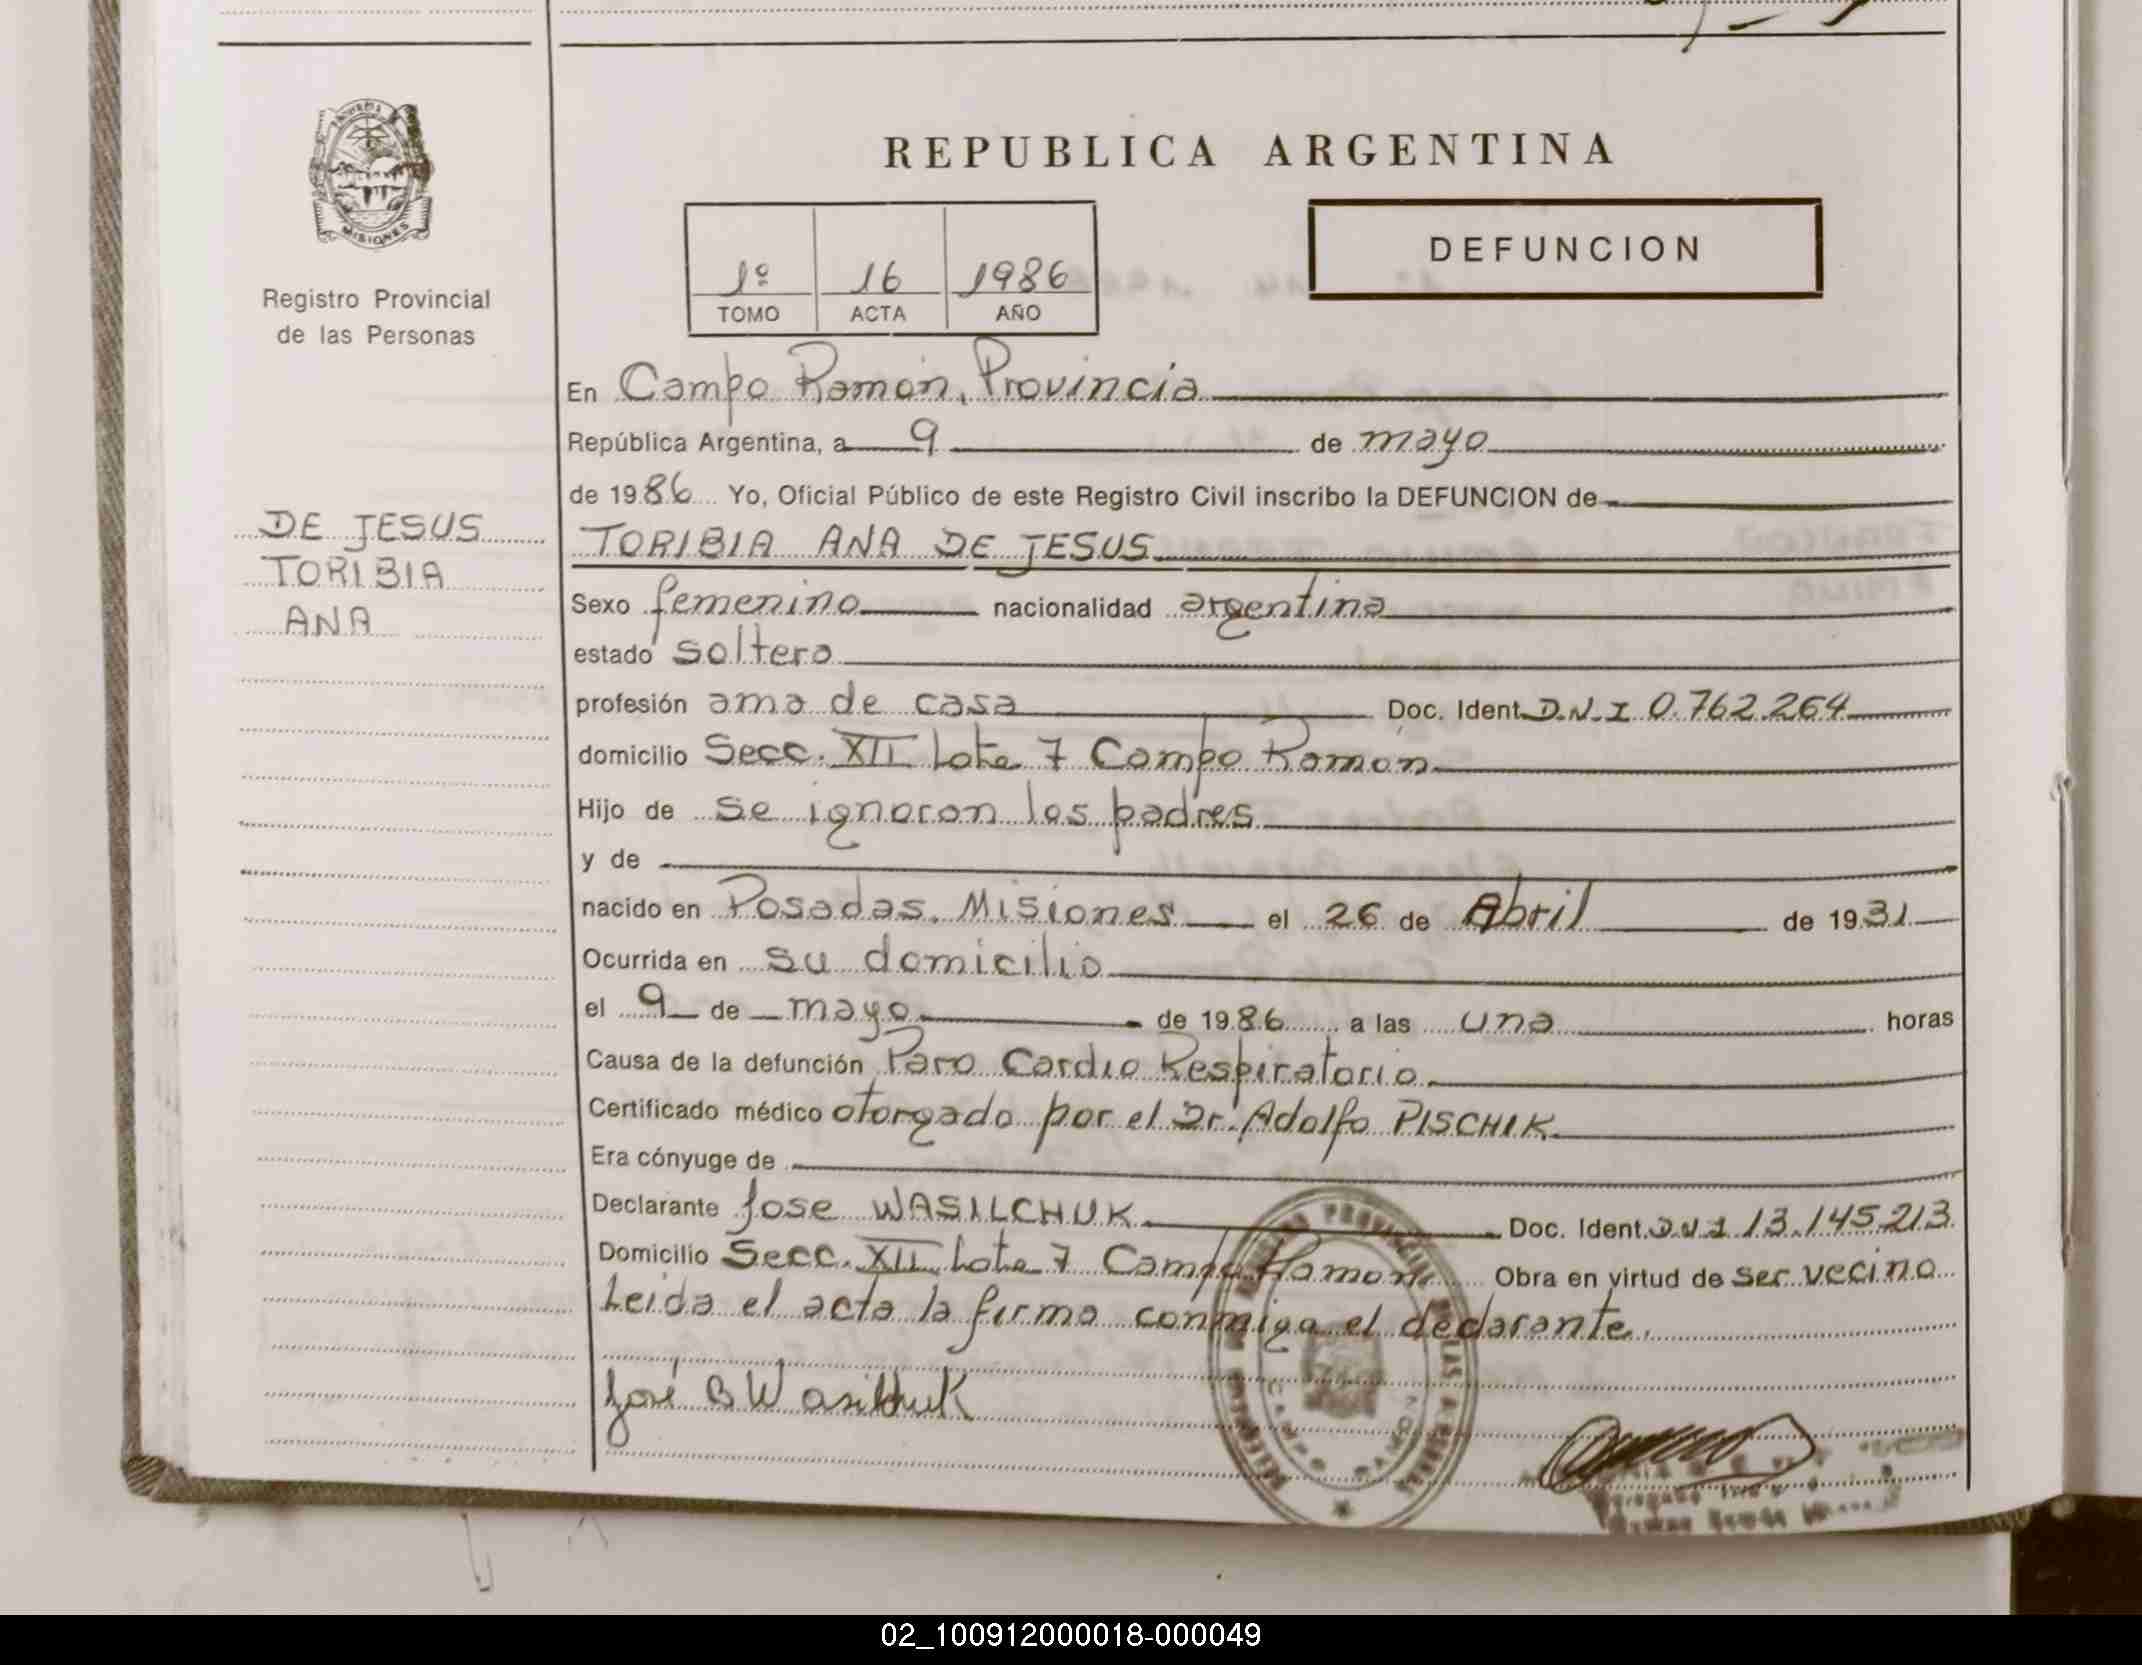 PROVINCIA
MISIONES
Registro Provincial
de las Personas
DE JESUS
TORIBIA
ANA
REPUBLICA ARGENTINA
1º 16 1986
TOMO ACTA AÑO
DEFUNCION
En Campo Ramón, Provincia
República Argentina, a 9 de mayo
de 1986 Yo, Oficial Público de este Registro Civil inscribo la DEFUNCION de
TORIBIA ANA DE JESUS
Sexo femenino nacionalidad argentina
estado soltera
profesión ama de casa Doc. Ident. D.N.I 0.762.264
domicilio Secc. XII Lote 7 Campo Ramon
Hijo de se ignoran los padres
y de
nacido en Posadas. Misiones el 26 de Abril de 1931
Ocurrida en su domicilio
el 9 de mayo de 1986 a las una horas
Causa de la defunción Paro Cardio Respiratorio
Certificado médico otorgado por el Dr. Adolfo PISCHIK
Era cónyuge de
Declarante Jose WASILCHUK Doc. Ident. D.N.I 13.145.213
Domicilio Secc. XII Lote 7 Campo Ramon Obra en virtud de ser vecino
Leida el acta la firma conmigo el declarante.
José B Wasilchuk
CAMPO RAMON
02_100912000018-000049